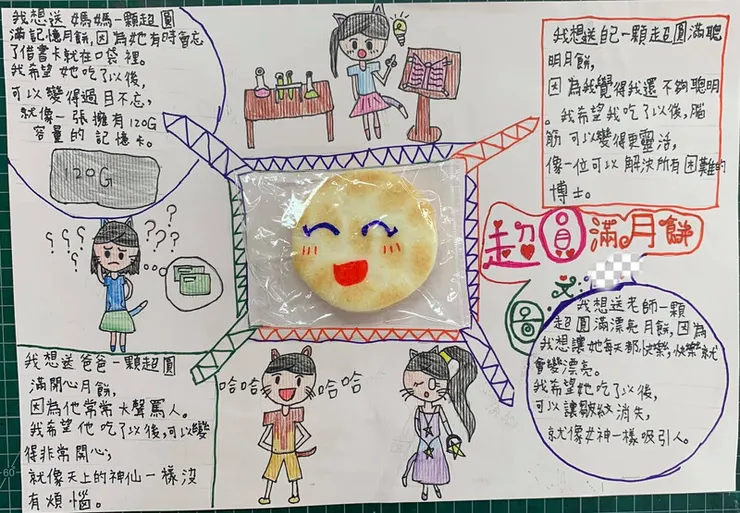 我想送媽媽一顆超圓
滿記憶月餅,因為她有時會忘
了借書卡就在口袋裡。
我希望她吃了以後,
可以變得過目不忘,
就像一張擁有120G
容量的記憶卡。
120G
我想送自己一顆超圓滿聰
明月餅,
因為我覺得我還不夠聰明
。我希望我吃了以後,腦
筋可以變得更靈活,
像一位可以解決所有困難的
博士。
超圓滿月餅
???
???
我想送爸爸一顆超圓
滿開心月餅,
因為他常常大聲罵人。
我希望他吃了以後,可以變
得非常開心;
就像天上的神仙一樣沒
有煩惱。
哈哈 哈哈
我想送老師一顆
超圓滿漂亮月餅,因為
我想讓她每天都快樂,快樂就
會變漂亮。
我希望她吃了以後,
可以讓皺紋消失,
就像女神一樣吸引人。